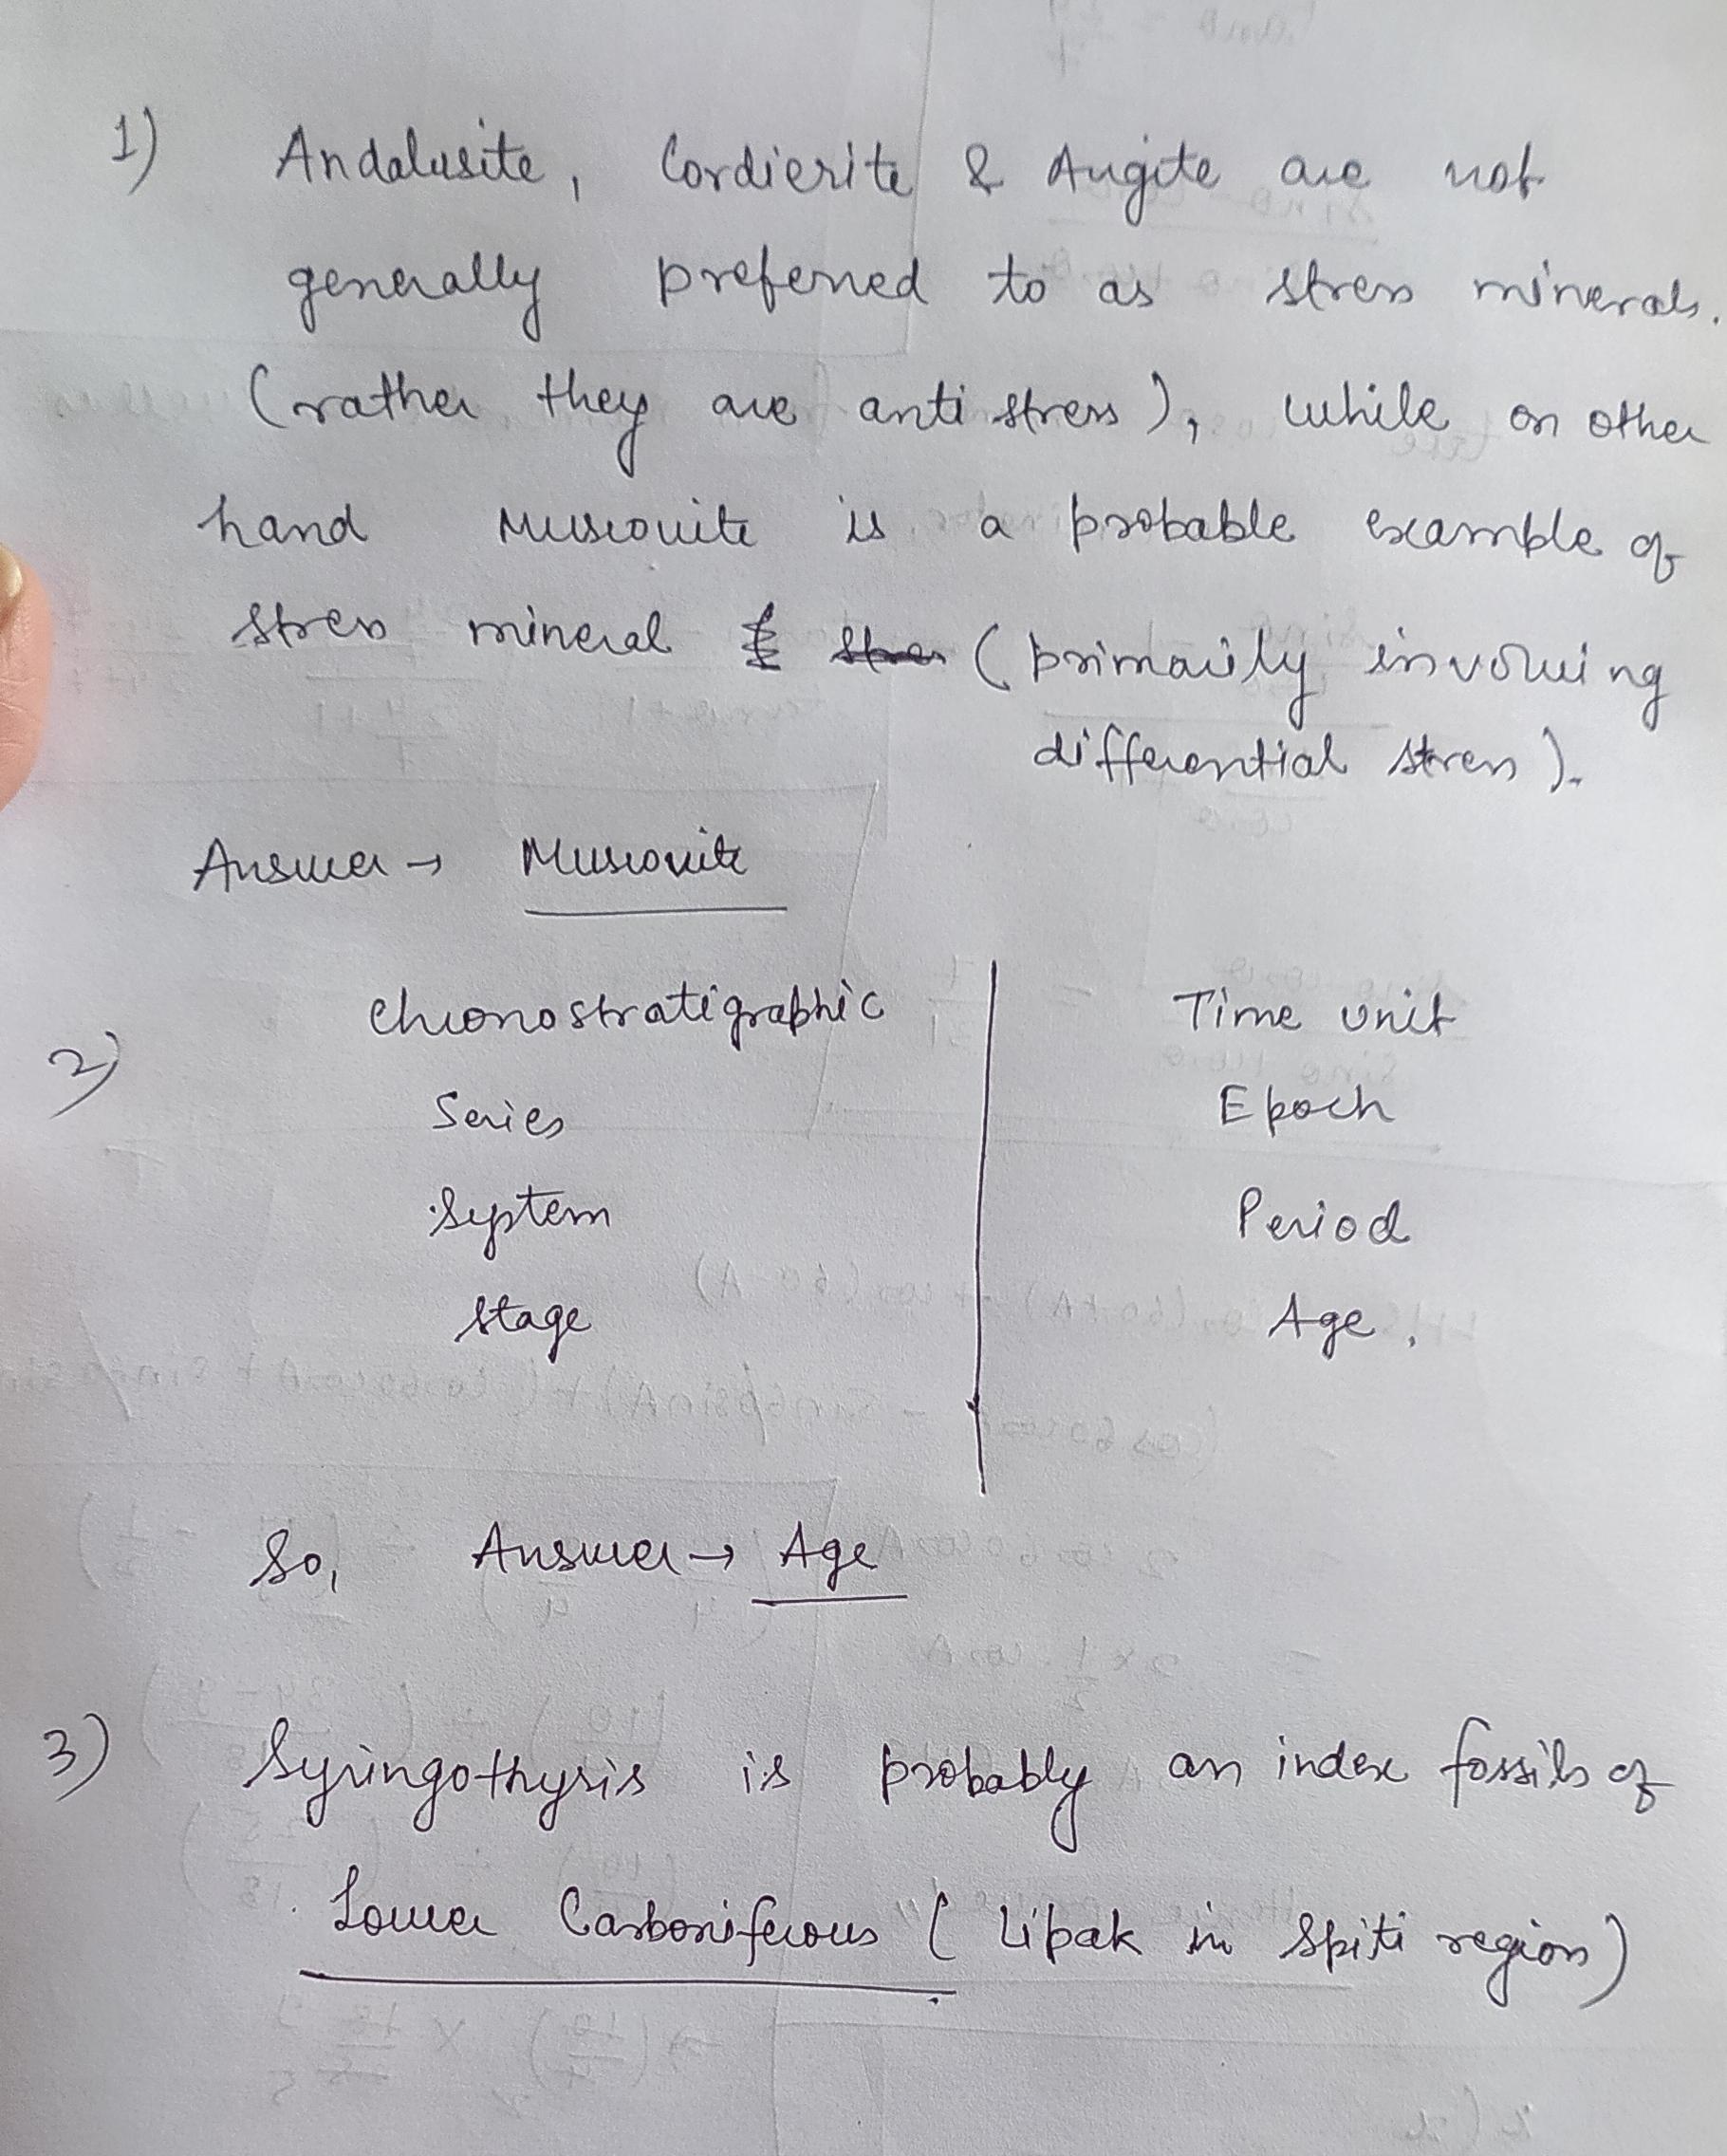 1) Andalusite, Cordierite & Augite are not
generally preferred to as stress minerals.
(rather they are anti stress), while on other
hand Muscovite is a probable example of
stress mineral (primarily involving
differential stress).
Answer → Muscovite
2) Chronostratigraphic Time unit
Series Epoch
System Period
Stage Age.
So, Answer → Age
3) Syringothyris is probably an index fossils of
Lower Carboniferous (Lipak in Spiti region)